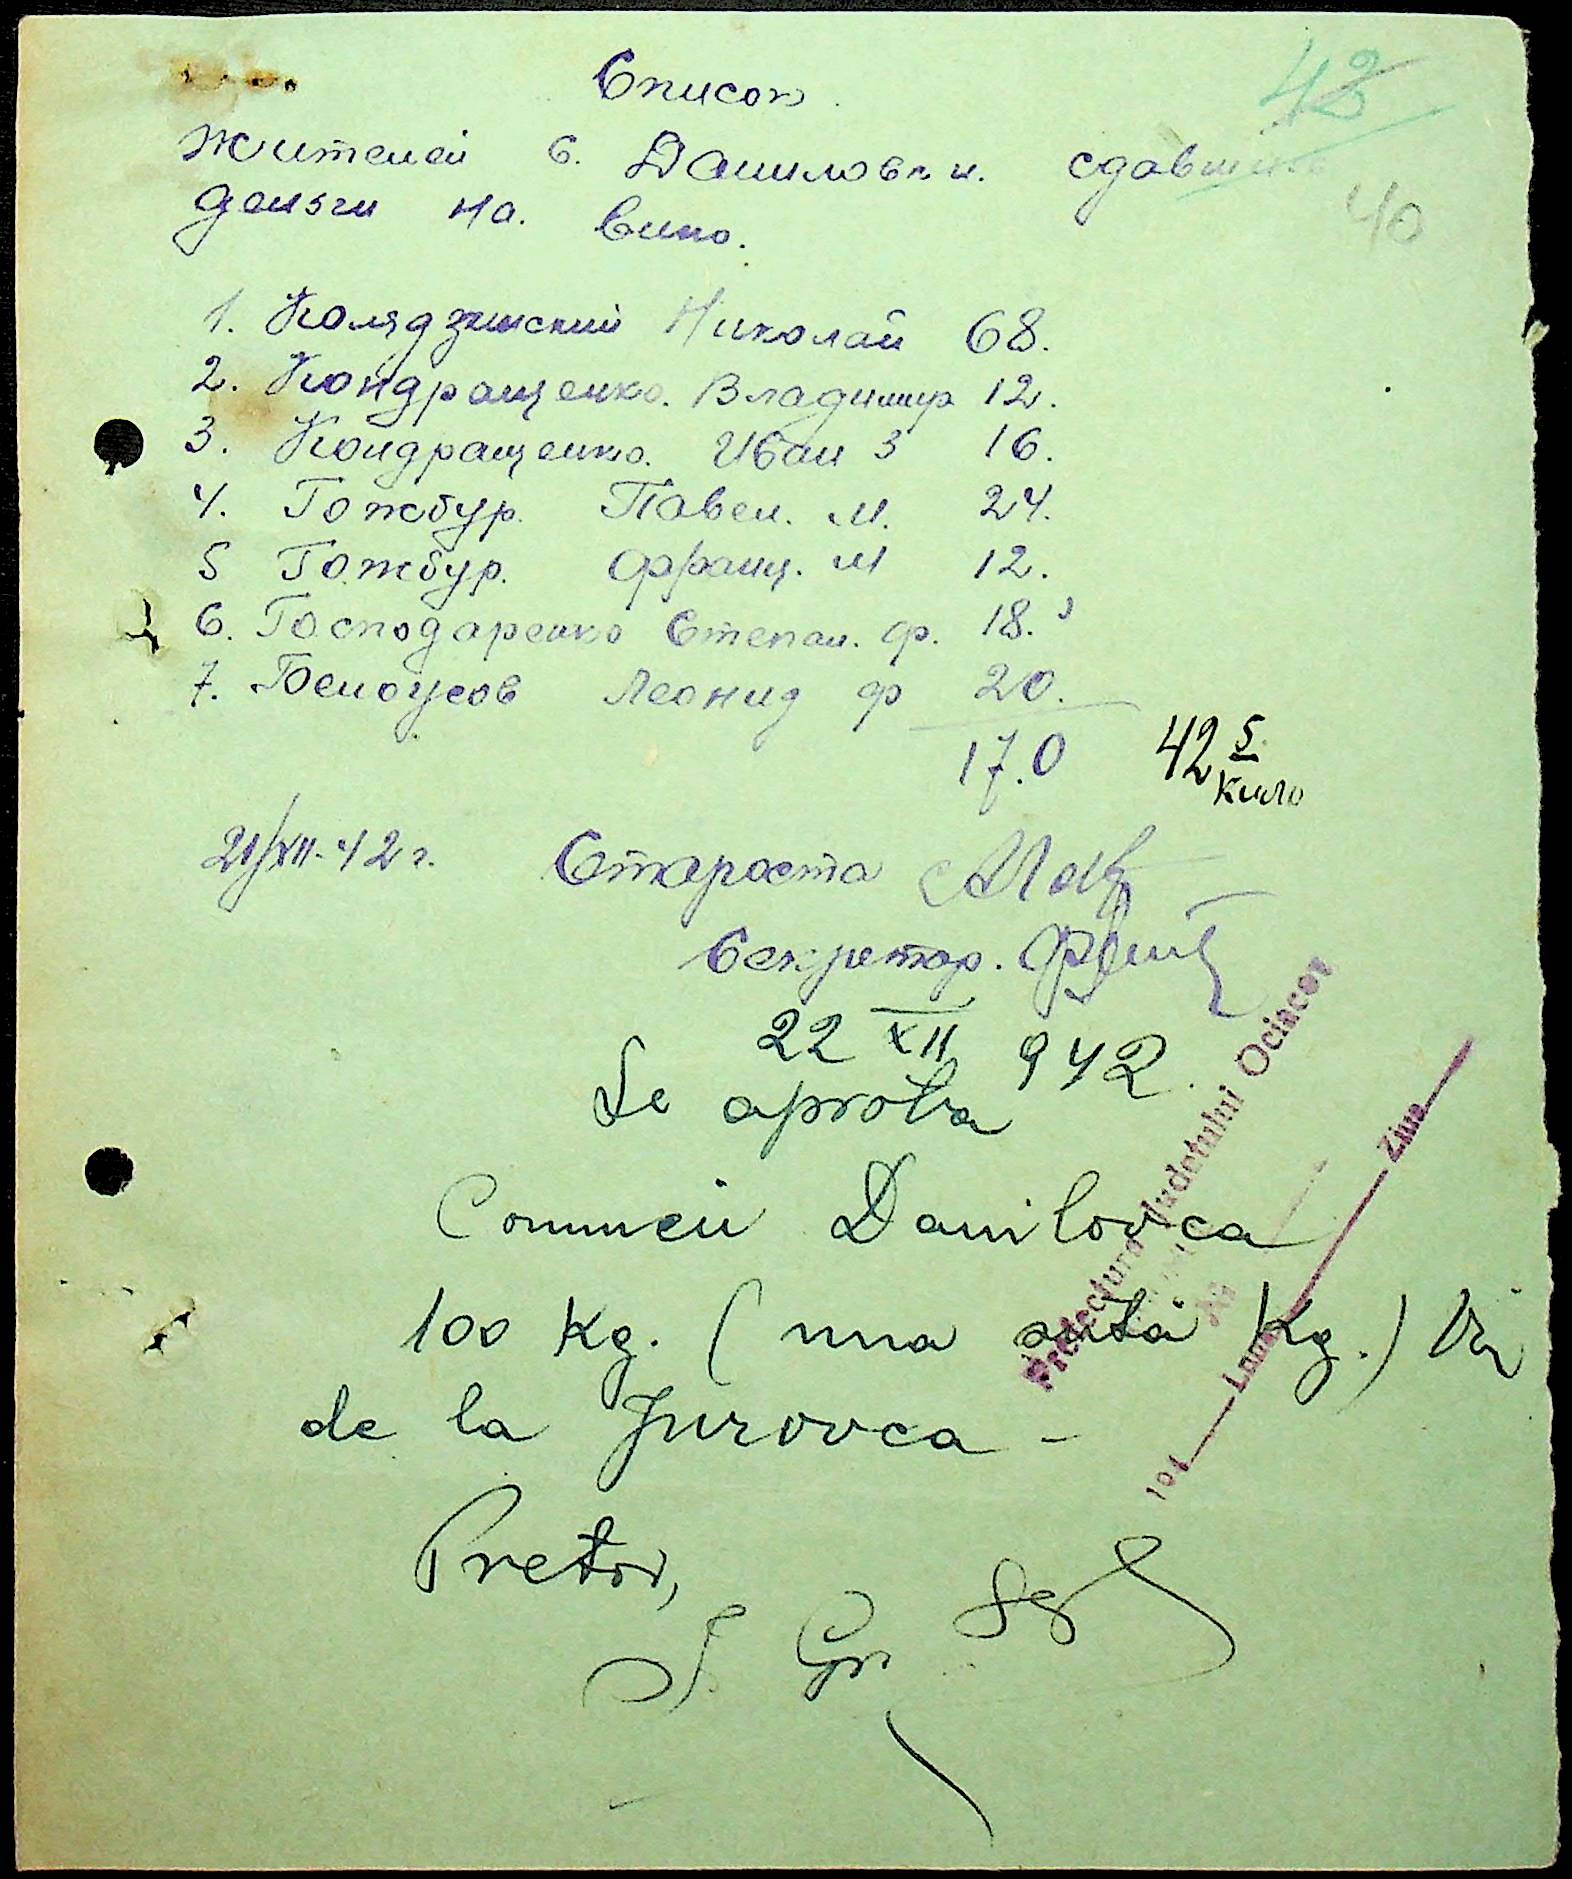 Список
42
жителей с. Даниловки. сдавших
40
деньги на. вино.
1. Колядзинский Николай 68.
2. Кондращенко. Владимир 12.
3. Кондращенко. Иван З 16.
4. Гожбур. Павел. М. 24.
5 Гожбур. Франц. М 12.
6. Господаренко Степан. Ф. 18.
7. Белоусов Леонид Ф 20.
17.0 42 5 кило
21/XII-42 г. Староста
Секретар.
22 XII 942.
Se aproba
Comunei Danilovca
100 Kg. (una sută Kg.) Vin
de la Jurovca -
Pretor,
Prefectura Judetului Ociacov
194 Luna Ziua